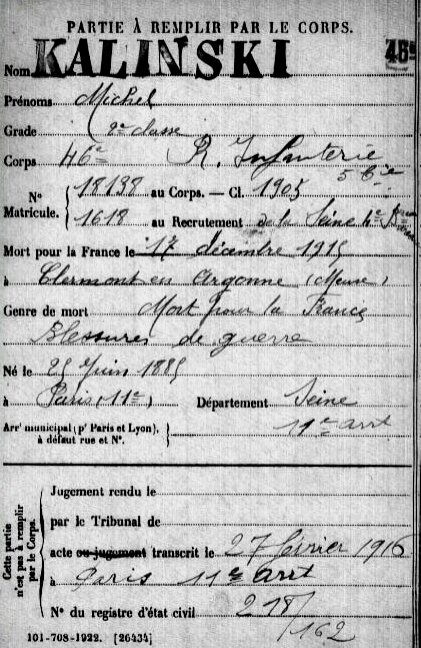 PARTIE À REMPLIR PAR LE CORPS.
46e
Nom KALINSKI
Prénoms Michel
Grade 2e classe
Corps 46e R. Infanterie
5e Cie
No Matricule. 18198 au Corps. — Cl. 1905
1618 au Recrutement de la Seine 4e
Mort pour la France le 17 décembre 1915
à Clermont en Argonne (Meuse)
Genre de mort Mort pour la France
Blessures de guerre
Né le 25 Juin 1885
à Paris (11e) Département Seine
Arrt municipal (pr Paris et Lyon), à défaut rue et No. 11e arrt
Cette partie n'est pas à remplir par le Corps.
Jugement rendu le
par le Tribunal de
acte ou jugement transcrit le 27 février 1916
à Paris 11e arrt
No du registre d'état civil 218
/162
101-708-1922. [26434]